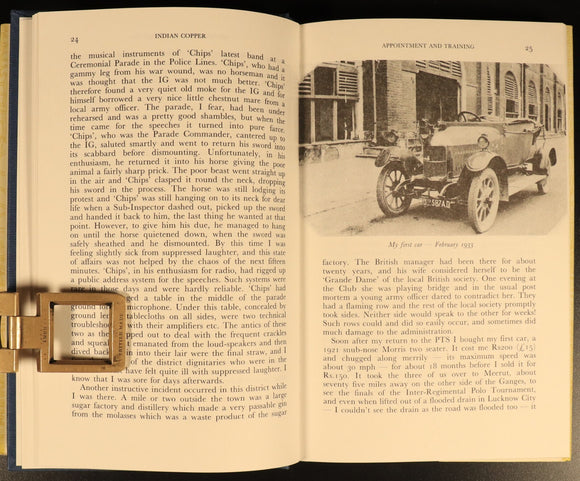 24 INDIAN COPPER
the musical instruments of 'Chips' latest band at a
Ceremonial Parade in the Police Lines. 'Chips', who had a
gammy leg from his war wound, was no horseman and it
was thought that the IG was not much better. 'Chips'
therefore found a very quiet old moke for the IG and for
himself borrowed a very nice little chestnut mare from a
local army officer. The parade, I fear, had been under
rehearsed and was a pretty good shambles, but when the
time came for the speeches it turned into pure farce.
'Chips', who was the Parade Commander, cantered up to
the IG, saluted smartly and went to return his sword into
its scabbard before dismounting. Unfortunately, in his
enthusiasm, he returned it into his horse giving the poor
animal a fairly sharp prick. The poor beast went straight up
in the air and 'Chips' clasped it round the neck, dropping
his sword in the process. The horse was still lodging its
protest and 'Chips' was still hanging on to its neck for dear
life when a Sub-Inspector dashed out, picked up the sword
and handed it back to him, the last thing he wanted at that
point. However, to give him his due, he managed to hang
on until the horse quietened down, when the sword was
safely sheathed and he dismounted. By this time I was
feeling slightly sick from suppressed laughter, and this state
of affairs was not helped by the chaos of the next fifteen
minutes. 'Chips', in his enthusiasm for radio, had rigged up
a public address system for the speeches. Such systems
were rare in those days and were hardly reliable. 'Chips' had
placed a table in the middle of the parade
ground for microphone. Under this table, concealed by
ground le tablecloths on all sides, were two technical
troublesho with their amplifiers etc. The antics of these
two as the pped out to deal with the frequent crackles
and squeak emanated from the loud-speakers and then
dived back in to their lair were the final straw, and I
of the district dignitaries who were in the
have felt quite ill with suppressed laughter. I
know that I was sore for days afterwards.
Another instructive incident occurred in this district while
I was there. A mile or two outside the town was a large
sugar factory and distillery which made a very passable gin
from the molasses which was a waste product of the sugar
APPOINTMENT AND TRAINING 25
My first car — February 1933
factory. The British manager had been there for about
twenty years, and his wife considered herself to be the
'Grande Dame' of the local British society. One evening at
the Club she was playing bridge and in the usual post
mortem a young army officer dared to contradict her. They
had a flaming row and the rest of the local society promptly
took sides. Neither side would speak to the other for weeks!
Such rows could and did so easily occur, and sometimes did
much damage to the administration.
Soon after my return to the PTS I bought my first car, a
1921 snub-nose Morris two seater. It cost me Rs200 (£15)
and chugged along merrily — its maximum speed was
about 30 mph — for about 18 months before I sold it for
Rs.150. It took the three of us over to Meerut, about
seventy five miles away on the other side of the Ganges, to
see the finals of the Inter-Regimental Polo Tournament,
and even when lifted out of a flooded drain in Lucknow City
— I couldn't see the drain as the road was flooded too — it